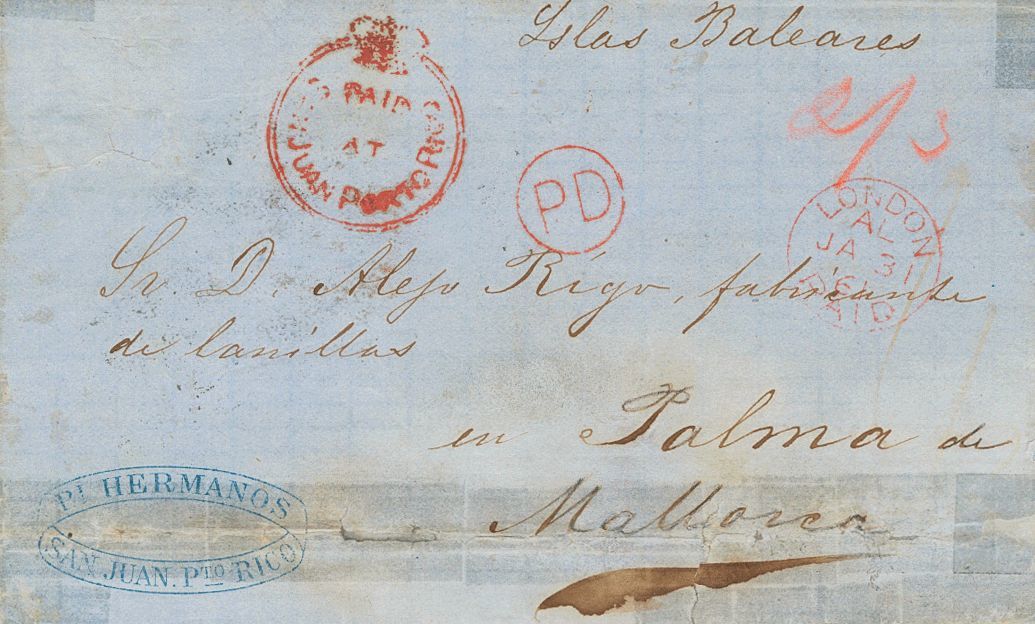 Islas Baleares
PAID
AT
JUAN PORTO RICO
PD
LONDON
AL
JA 31
61
PAID
Sr. D. Alejo Rigo, fabricante
de lanillas
en Palma de
Mallorca
PI HERMANOS
SAN JUAN. PTO RICO